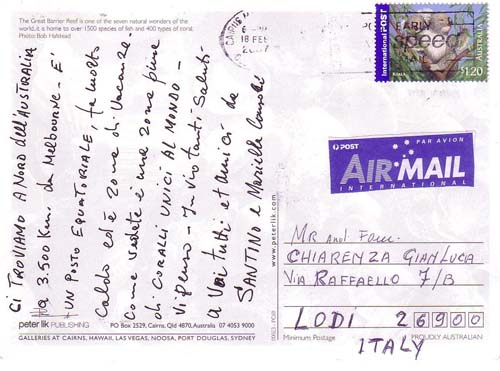 The Great Barrier Reef is one of the seven natural wonders of the
world, it is home to over 1500 species of fish and 400 types of coral.
Photo: Bob Halstead
CI TROVIAMO A NORD DELL'AUSTRALIA
Ha 3.500 Km. da Melbourne - E'
UN POSTO EQUATORIALE, fa molto
Caldo ed è zona di Vacanza
Come vedete è una zona piena
di CORALLI UNICI AL MONDO -
Vi Penso - Invio tanti Saluti
a Voi tutti et Amici da
SANTINO e Mariella
peter lik PUBLISHING
PO Box 2529, Cairns, Qld 4870, Australia 07 4053 9000
GALLERIES AT CAIRNS, HAWAII, LAS VEGAS, NOOSA, PORT DOUGLAS, SYDNEY
www.peterlik.com
CAIRNS
18 FEB
2007
EARLY
speed
International POST
AUSTRALIA
KOALA
$1.20
POST
PAR AVION
AIR MAIL
INTERNATIONAL
MR and Fam.
CHIARENZA GIANLUCA
VIA RAFFAELLO 7/B
LODI 26900
ITALY
Minimum Postage
PROUDLY AUSTRALIAN